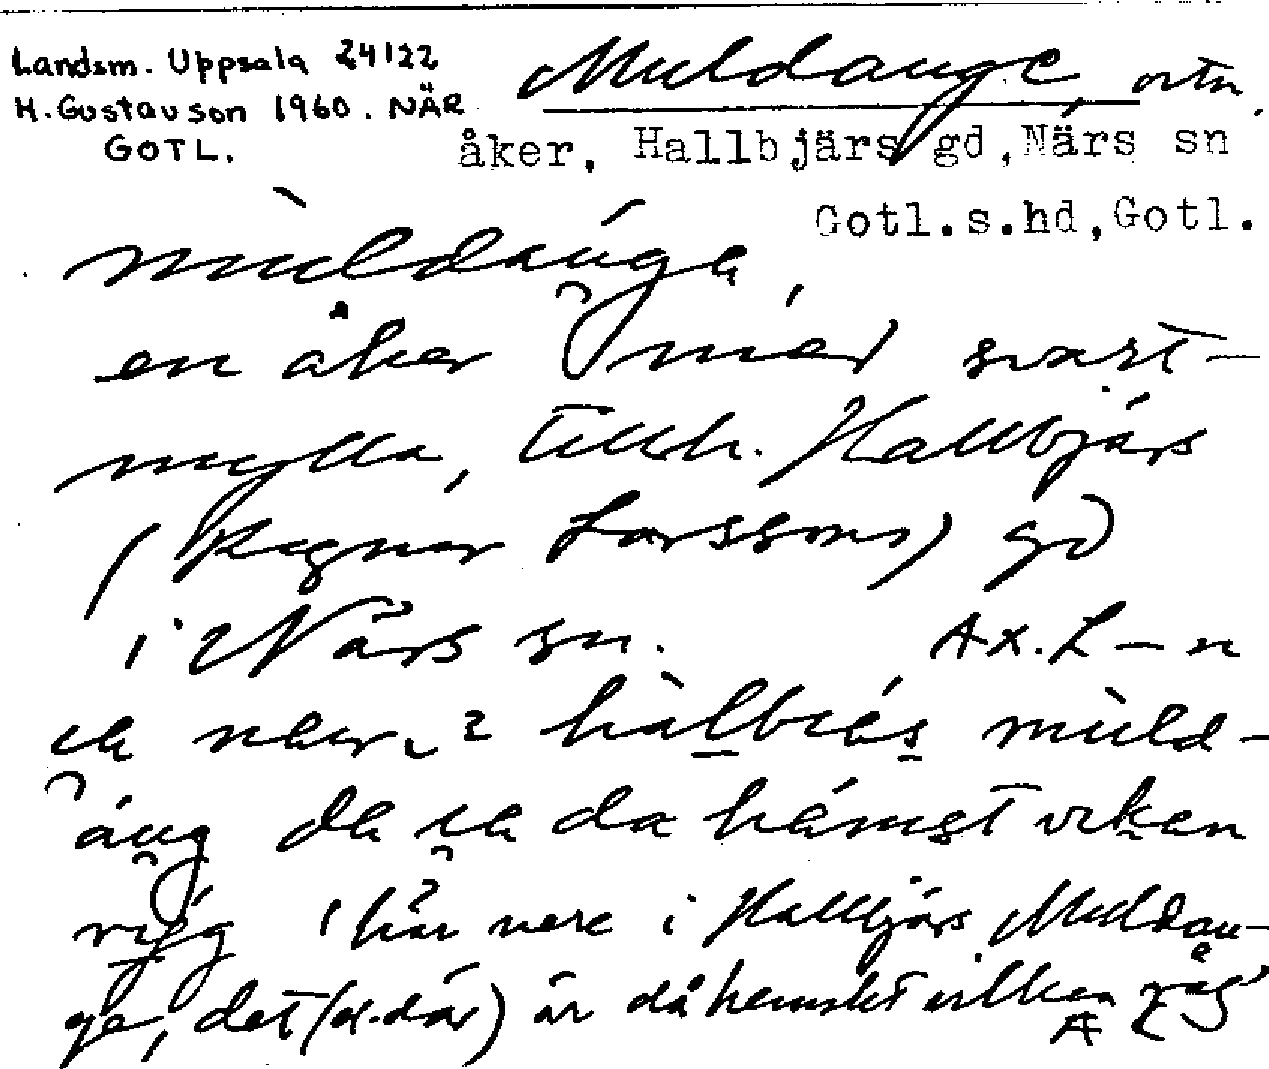 Landsm. Uppsala 24122
H. Gustavson 1960. NÄR
GOTL.
Muldauge, ortn.
åker, Hallbjärs gd, Närs sn
Gotl.s.hd, Gotl.
mùldáuga
en åker med svart-
mylla, tillh. Hallbjärs
(Regner Larssons) gd
i Närs sn. Ax. L-n
hàlbiés mùld-
áug da hémst
'här nere i Hallbjärs Muldau-
ge, det (d.där) är då hemskt vilken råg'